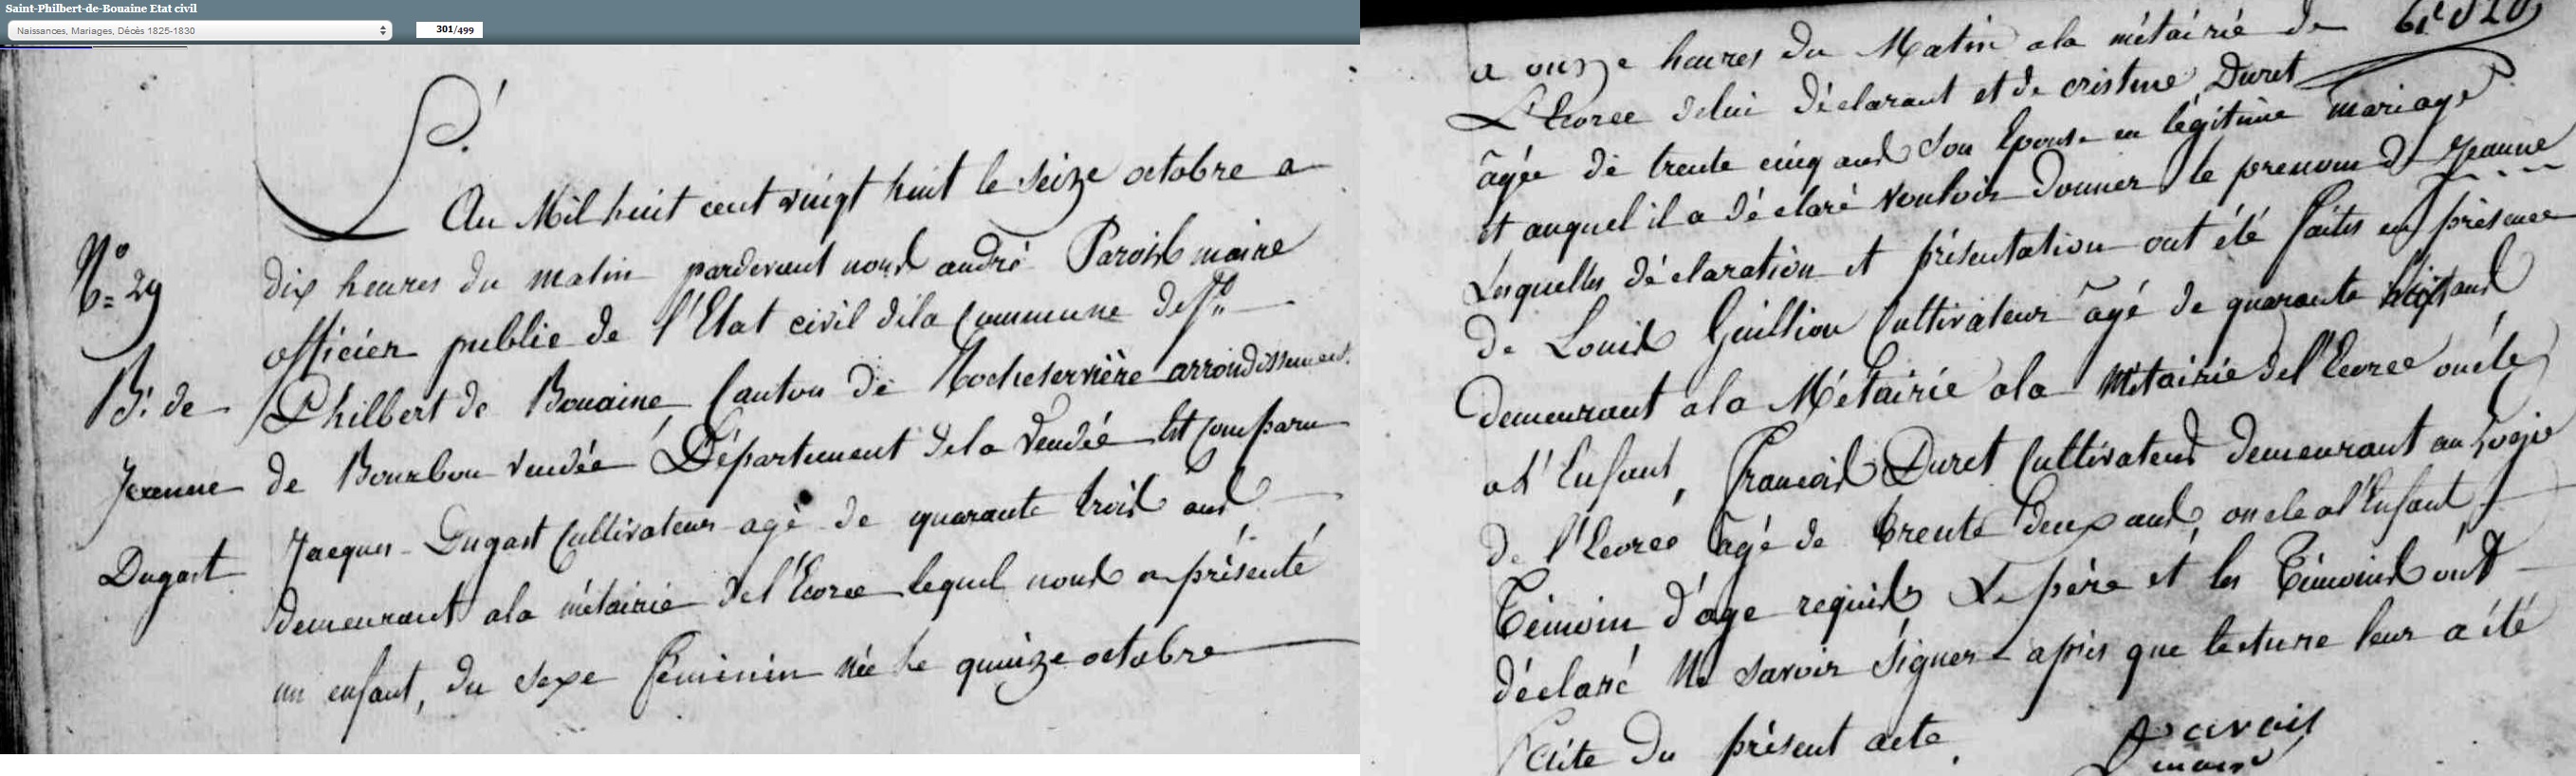 Saint-Philbert-de-Bouaine Etat civil
Naissances, Mariages, Décès 1825-1830
301/499
L'
An Mil huit cent vingt huit le seize octobre a
N° 29
dix heures du matin pardevant nous andré Parois maire
officier public de l'Etat civil dela Commune de St
B. de
Philbert de Bouaine Canton de Rocheservière arrondissement
de Bourbon vendée Département dela Vendée Est Comparu
Jeanne
Jacques Dugast Cultivateur agé de quarante trois ans
Dugast
demeurant ala métairie del'Ecorce lequel nous a présenté
un enfant, du sexe féminin née le quinze octobre
a onze heures du Matin ala métairie de
L'Ecorce delui déclarant et de cristine Duret
agée de trente cinq ans son Epouse en légitime mariage
et auquel il a déclaré vouloir donner le prenom de Jeanne
Lesquelles déclaration et présentation ont été faites en présence
de Louis Guillion Cultivateur agé de quarante ans
demeurant ala Métairie ala Métairie del'Ecorce oncle
a L'Enfant, François Duret Cultivateur demeurant au Logis
de l'Ecorce agé de trente deux ans, oncle a l'Enfant
Témoin d'age requis Le père et les Témoins ont
déclaré Ne savoir Signer après que lecture leur a été
faite du présent acte.
Parois
maire